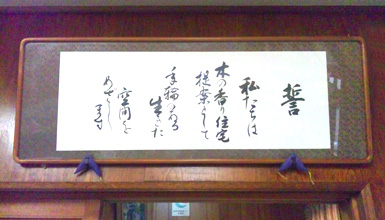 誓
私たちは
木の香り住宅
提案として
年輪ある
生きた
空間を
めざし
ます